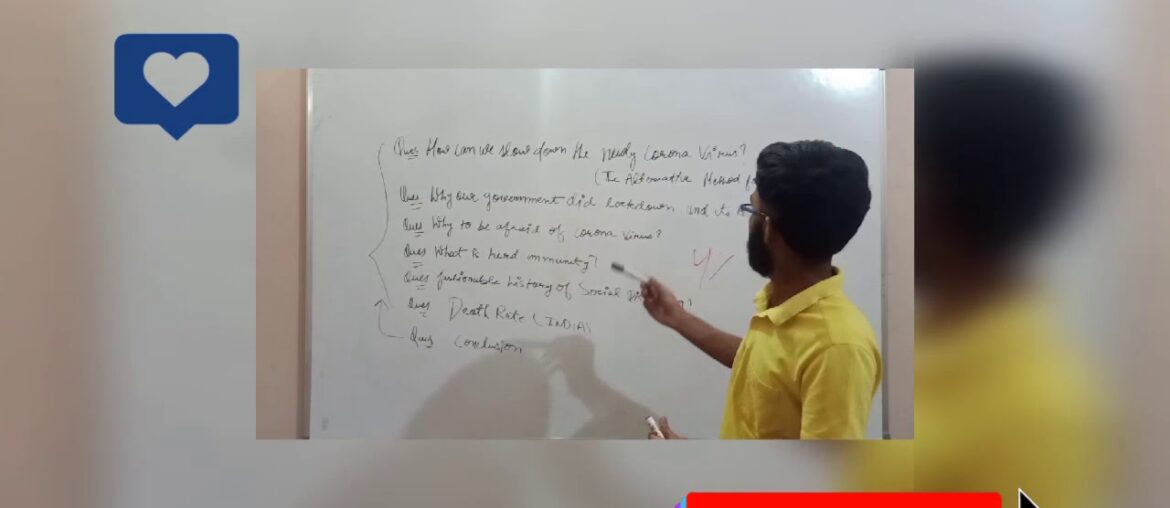 Ques How can we slow down the newly Corona Virus?
(The Alternative Method
Ques Why our government did lockdown and its
Ques Why to be afraid of corona virus?
Ques What is herd mmunity?
Ques fashionable history of Social
Ques Death Rate (INDIA)
Ques Conclusion